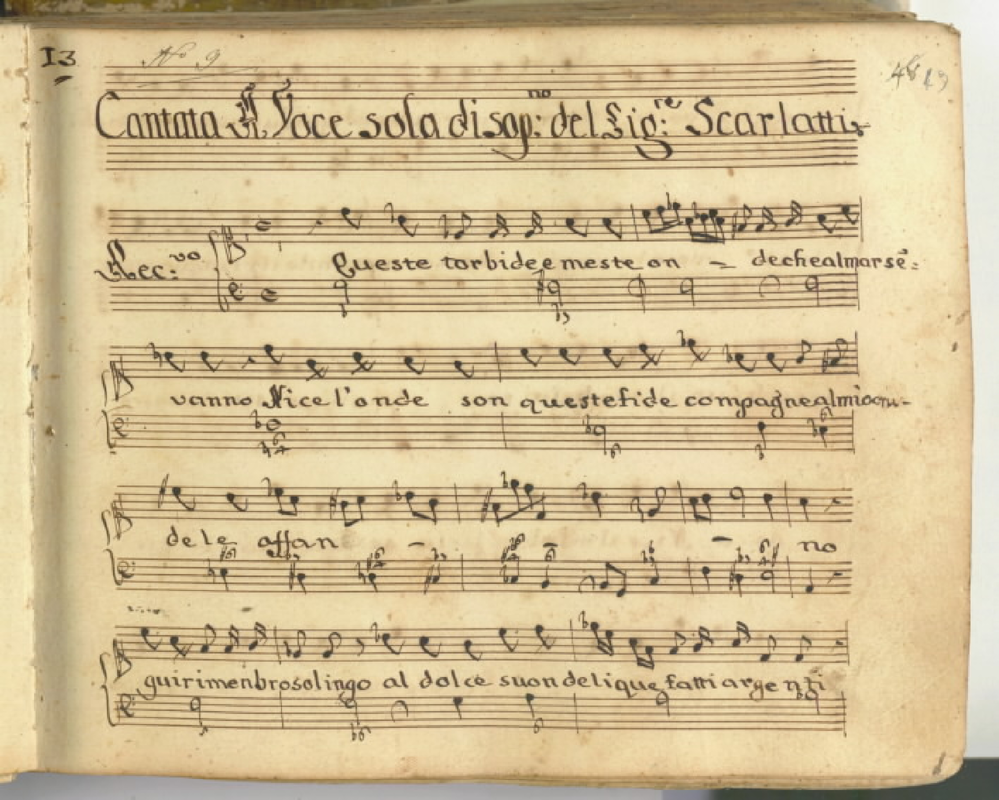 13
No 9
Cantata A Voce sola di sop:no del Sig:re Scarlatti
Rec:vo
Queste torbide e meste on - de che al mar se=
vanno Nice l'onde son queste fide compagne al mio cru-
dele affan - - no
guirimenbrosolingo al dolce suon deli que fatti argenti